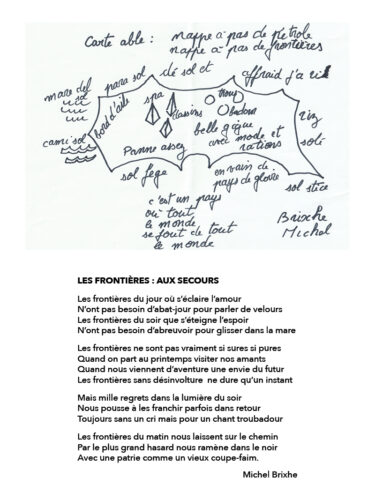 Carte able : nappe à pas de pétrole
nappe à pas de frontières
para sol
dé sol et
affraid j'a
mare del sol
bord d'aile
spa
dessins
belle gique
avec mode et
rations
riz
sole
cami sol
Panne assez
sol fège
en vain de
pays de gloire
sol stice
c'est un pays
où tout
le monde
se fout de tout
le monde
Brixhe
Michel
LES FRONTIÈRES : AUX SECOURS
Les frontières du jour où s'éclaire l'amour
N'ont pas besoin d'abat-jour pour parler de velours
Les frontières du soir que s'éteigne l'espoir
N'ont pas besoin d'abreuvoir pour glisser dans la mare
Les frontières ne sont pas vraiment si sures si pures
Quand on part au printemps visiter nos amants
Quand nous viennent d'aventure une envie du futur
Les frontières sans désinvolture ne dure qu'un instant
Mais mille regrets dans la lumière du soir
Nous pousse à les franchir parfois dans retour
Toujours sans un cri mais pour un chant troubadour
Les frontières du matin nous laissent sur le chemin
Par le plus grand hasard nous ramène dans le noir
Avec une patrie comme un vieux coupe-faim.
Michel Brixhe